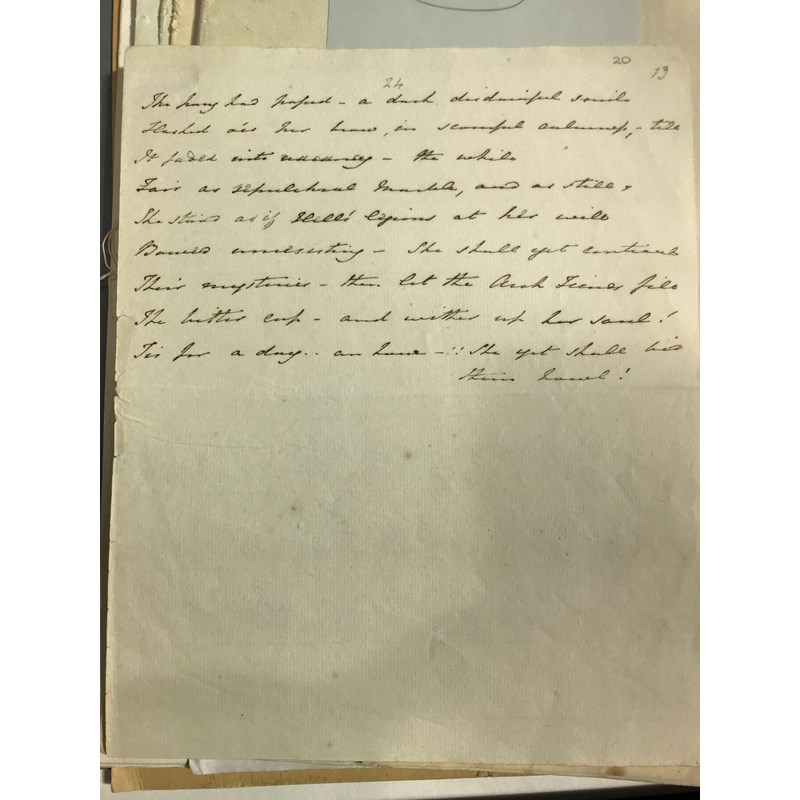 20
19
24
The pang had passed – a dark disdainful smile
Flashed o'er her brow, in scornful calmness, – till
It faded into vacancy – the while
Fair as sepulchral marble, and as still,
She stood as if Hell's legions at her will
Bowed unresisting – She shall yet
Their mysteries – then let the Arch Fiend fill
The bitter cup – and wither up her soul!
Tis for a day.. an hour –:: She yet shall bid
them howl!